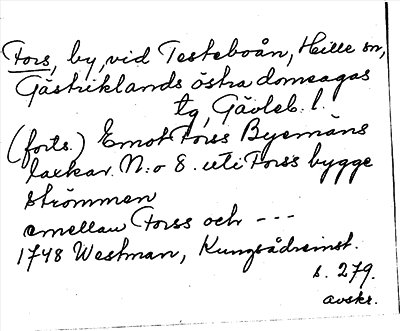 Fors, by, vid Testeboån, Hille sn,
Gästriklands östra domsagas
tg, Gävleb. l.
(forts.) Emot Forss Byemäns
lackar. N:o 8. uti Forss bygge
strömmen
emellan Forss och ---
1748 Westman, Kungsådreinst.
s. 279.
avskr.